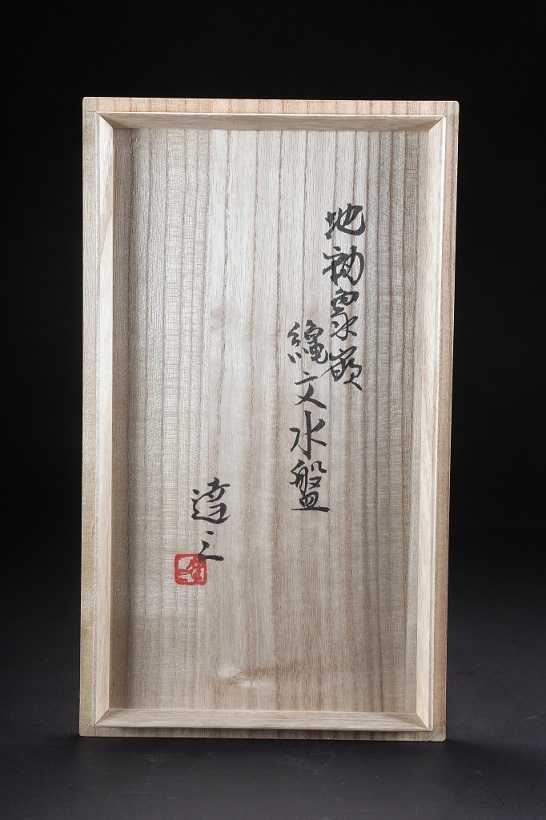 地釉象嵌
縄文水盤
達三